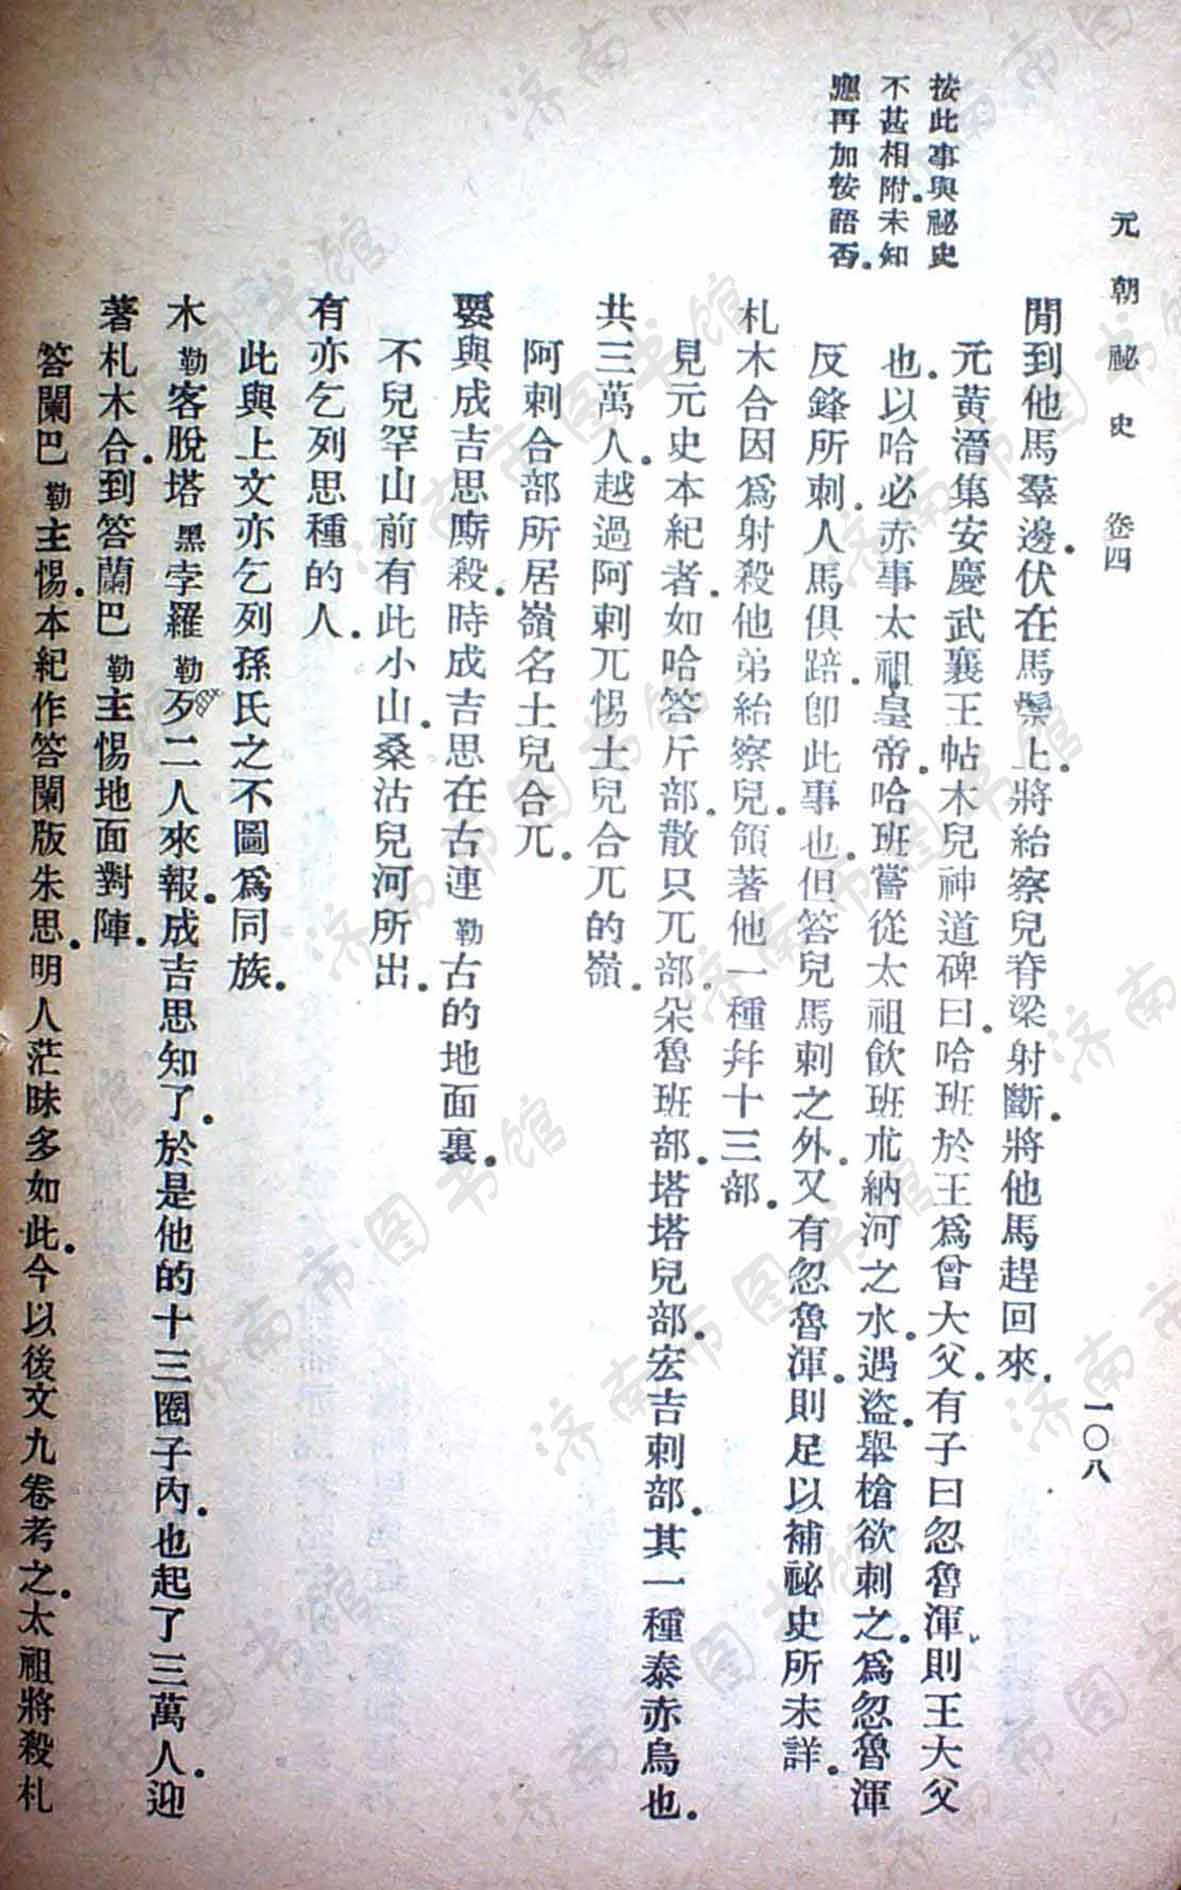 元朝祕史 卷四 一〇八
按此事與祕史
不甚相附。未知
應再加按語否。
間到他馬羣邊。伏在馬鬃上。將紿察兒脊梁射斷。將他馬趕回來。
元黃溍集安慶武襄王帖木兒神道碑曰。哈班於王爲曾大父。有子曰忽魯渾。則王大父
也。以哈必亦事太祖皇帝。哈班嘗從太祖飲班朮納河之水。遇盜。舉槍欲刺之。爲忽魯渾
反鋒所刺。人馬俱踣。卽此事也。但答兒馬刺之外。又有忽魯渾。則足以補祕史所未詳。
札木合因爲射殺他弟紿察兒。領著他一種幷十三部。
見元史本紀者。如哈答斤部。散只兀部。朵魯班部。塔塔兒部。宏吉剌部。其一種泰赤烏也。
共三萬人。越過阿剌兀惕土兒合兀的嶺。
阿剌合部所居嶺名土兒合兀。
要與成吉思廝殺。時成吉思在古連勒古的地面裏。
不兒罕山前有此小山。桑沽兒河所出。
有亦乞列思種的人。
此與上文亦乞列孫氏之不圖爲同族。
木勒客脫塔黑孛羅勒歹二人來報。成吉思知了。於是他的十三圈子內。也起了三萬人。迎
著札木合。到答蘭巴勒主惕地面對陣。
答闌巴勒主惕。本紀作答闌版朱思。明人茫昧多如此。今以後文九卷考之。太祖將殺札